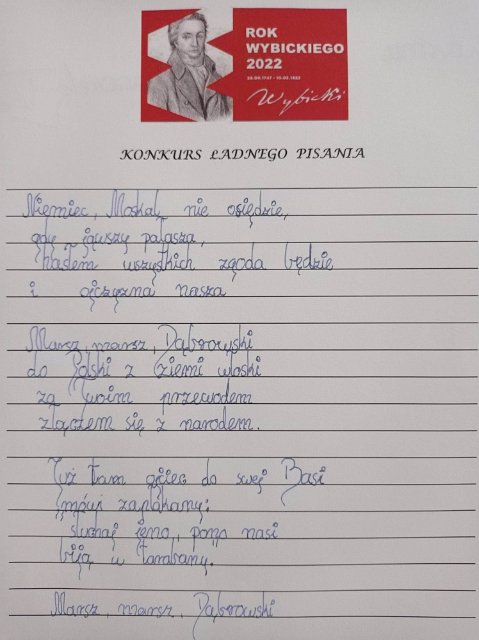 ROK
WYBICKIEGO
2022
29.09.1747 - 10.03.1822
Wybicki
KONKURS ŁADNEGO PISANIA
Niemiec, Moskal nie osiędzie,
gdy jąwszy pałasza,
hasłem wszystkich zgoda będzie
i ojczyzna nasza
Marsz, marsz, Dąbrowski
do Polski z ziemi włoski
za Twoim przewodem
złączem się z narodem.
Już tam ojciec do swej Basi
mówi zapłakany:
słuchaj jeno, pono nasi
biją w tarabany.
Marsz, marsz, Dąbrowski